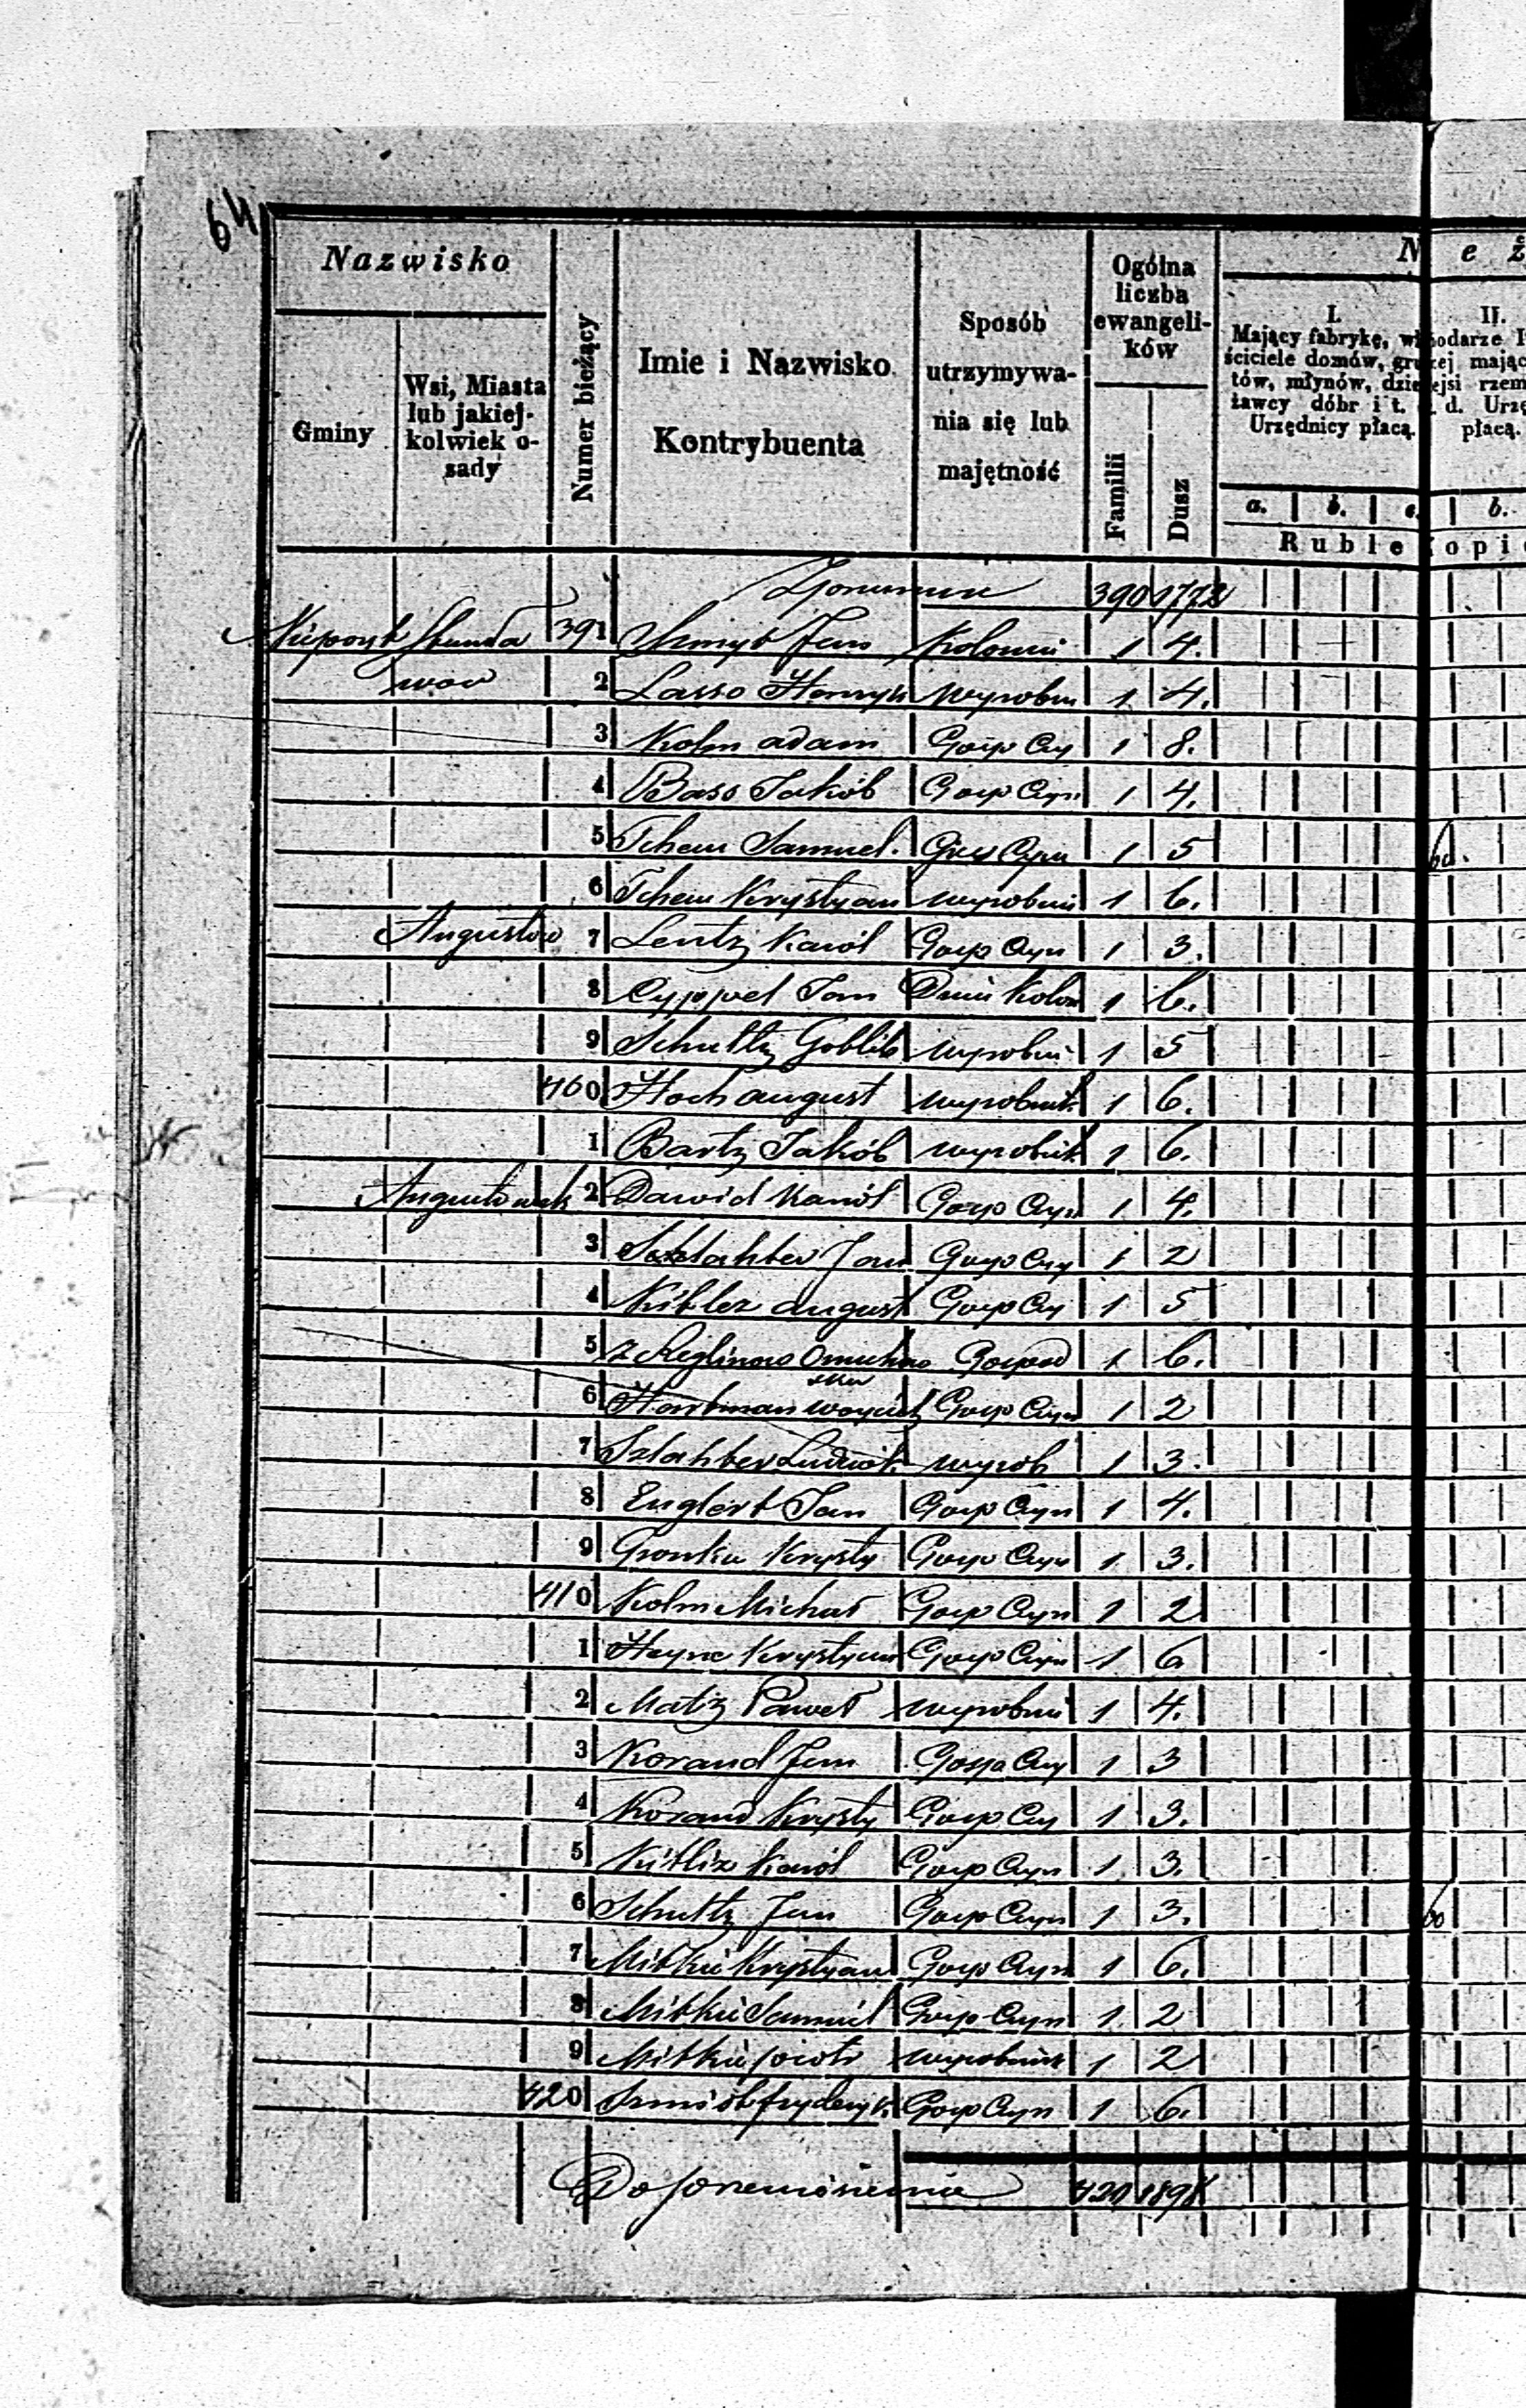 64
Nazwisko
Gminy
Wsi, Miasta
lub jakiej-
kolwiek o-
sady
Numer bieżący
Imie i Nazwisko
Kontrybuenta
Sposób
utrzymywa-
nia się lub
majętność
Ogólna
liczba
ewangeli-
ków
Familii
Dusz
N e ż
I.
Mający fabrykę, wł
ściciele domów, gru
tów, młynów, dzie
ławcy dóbr i t. d.
Urzędnicy płacą.
II.
odarze
ej mając
jsi rzem
d. Urzę
płacą.
a. b. c. b.
Ruble Kopi
390 1772
391 Szmyt Jan Koloni 1 4.
2 Lasso Henryk wyrobni 1 4.
3 Kolm adam Gosp Czy 1 8.
4 Bass Jakób Gosp Czyn 1 4.
5 Tchem Samuel. Gosp Czyn 1 5
6 Tchem Krystyan wyrobni 1 6.
Augustów 7 Lentz Karól Gosp Czyn 1 3.
8 Cyppel Jan Kolon 1 6.
9 Schultz Gotlib wyrobni 1 5
400 Hoch august wyrobnik 1 6.
1 Bartz Jakób wyrobnik 1 6.
Augustówek 2 Dawid Karól Gosp Czyn 1 4.
3 Szlahter Jan Gosp Czy 1 2
4 Kibler august Gosp Czy 1 5
5 Gospod 1 6.
6 Hartman Gosp Czyn 1 2
7 Szlahter Ludwik wyrob 1 3.
8 Englert Jan Gosp Czyn 1 4.
9 Gronke Krysty Gosp Czyn 1 3.
410 Kolm Michał Gosp Czyn 1 2
1 Heyne Krystyan Gosp Czyn 1 6
2 Matz Paweł wyrobni 1 4.
3 Korand Jan Gosp Czy 1 3
4 Korand Krysty Gosp Czy 1 3.
5 Karól Gosp Czyn 1 3.
6 Schultz Jan Gosp Czyn 1 3.
7 Mitke Krystyan Gosp Czyn 1 6.
8 Mitke Samuel Gosp Czyn 1 2
9 Mitke piotr wyrobnik 1 2
420 Szmidt fryderyk Gosp Czyn 1 6.
Do przeniesienia 420 1898